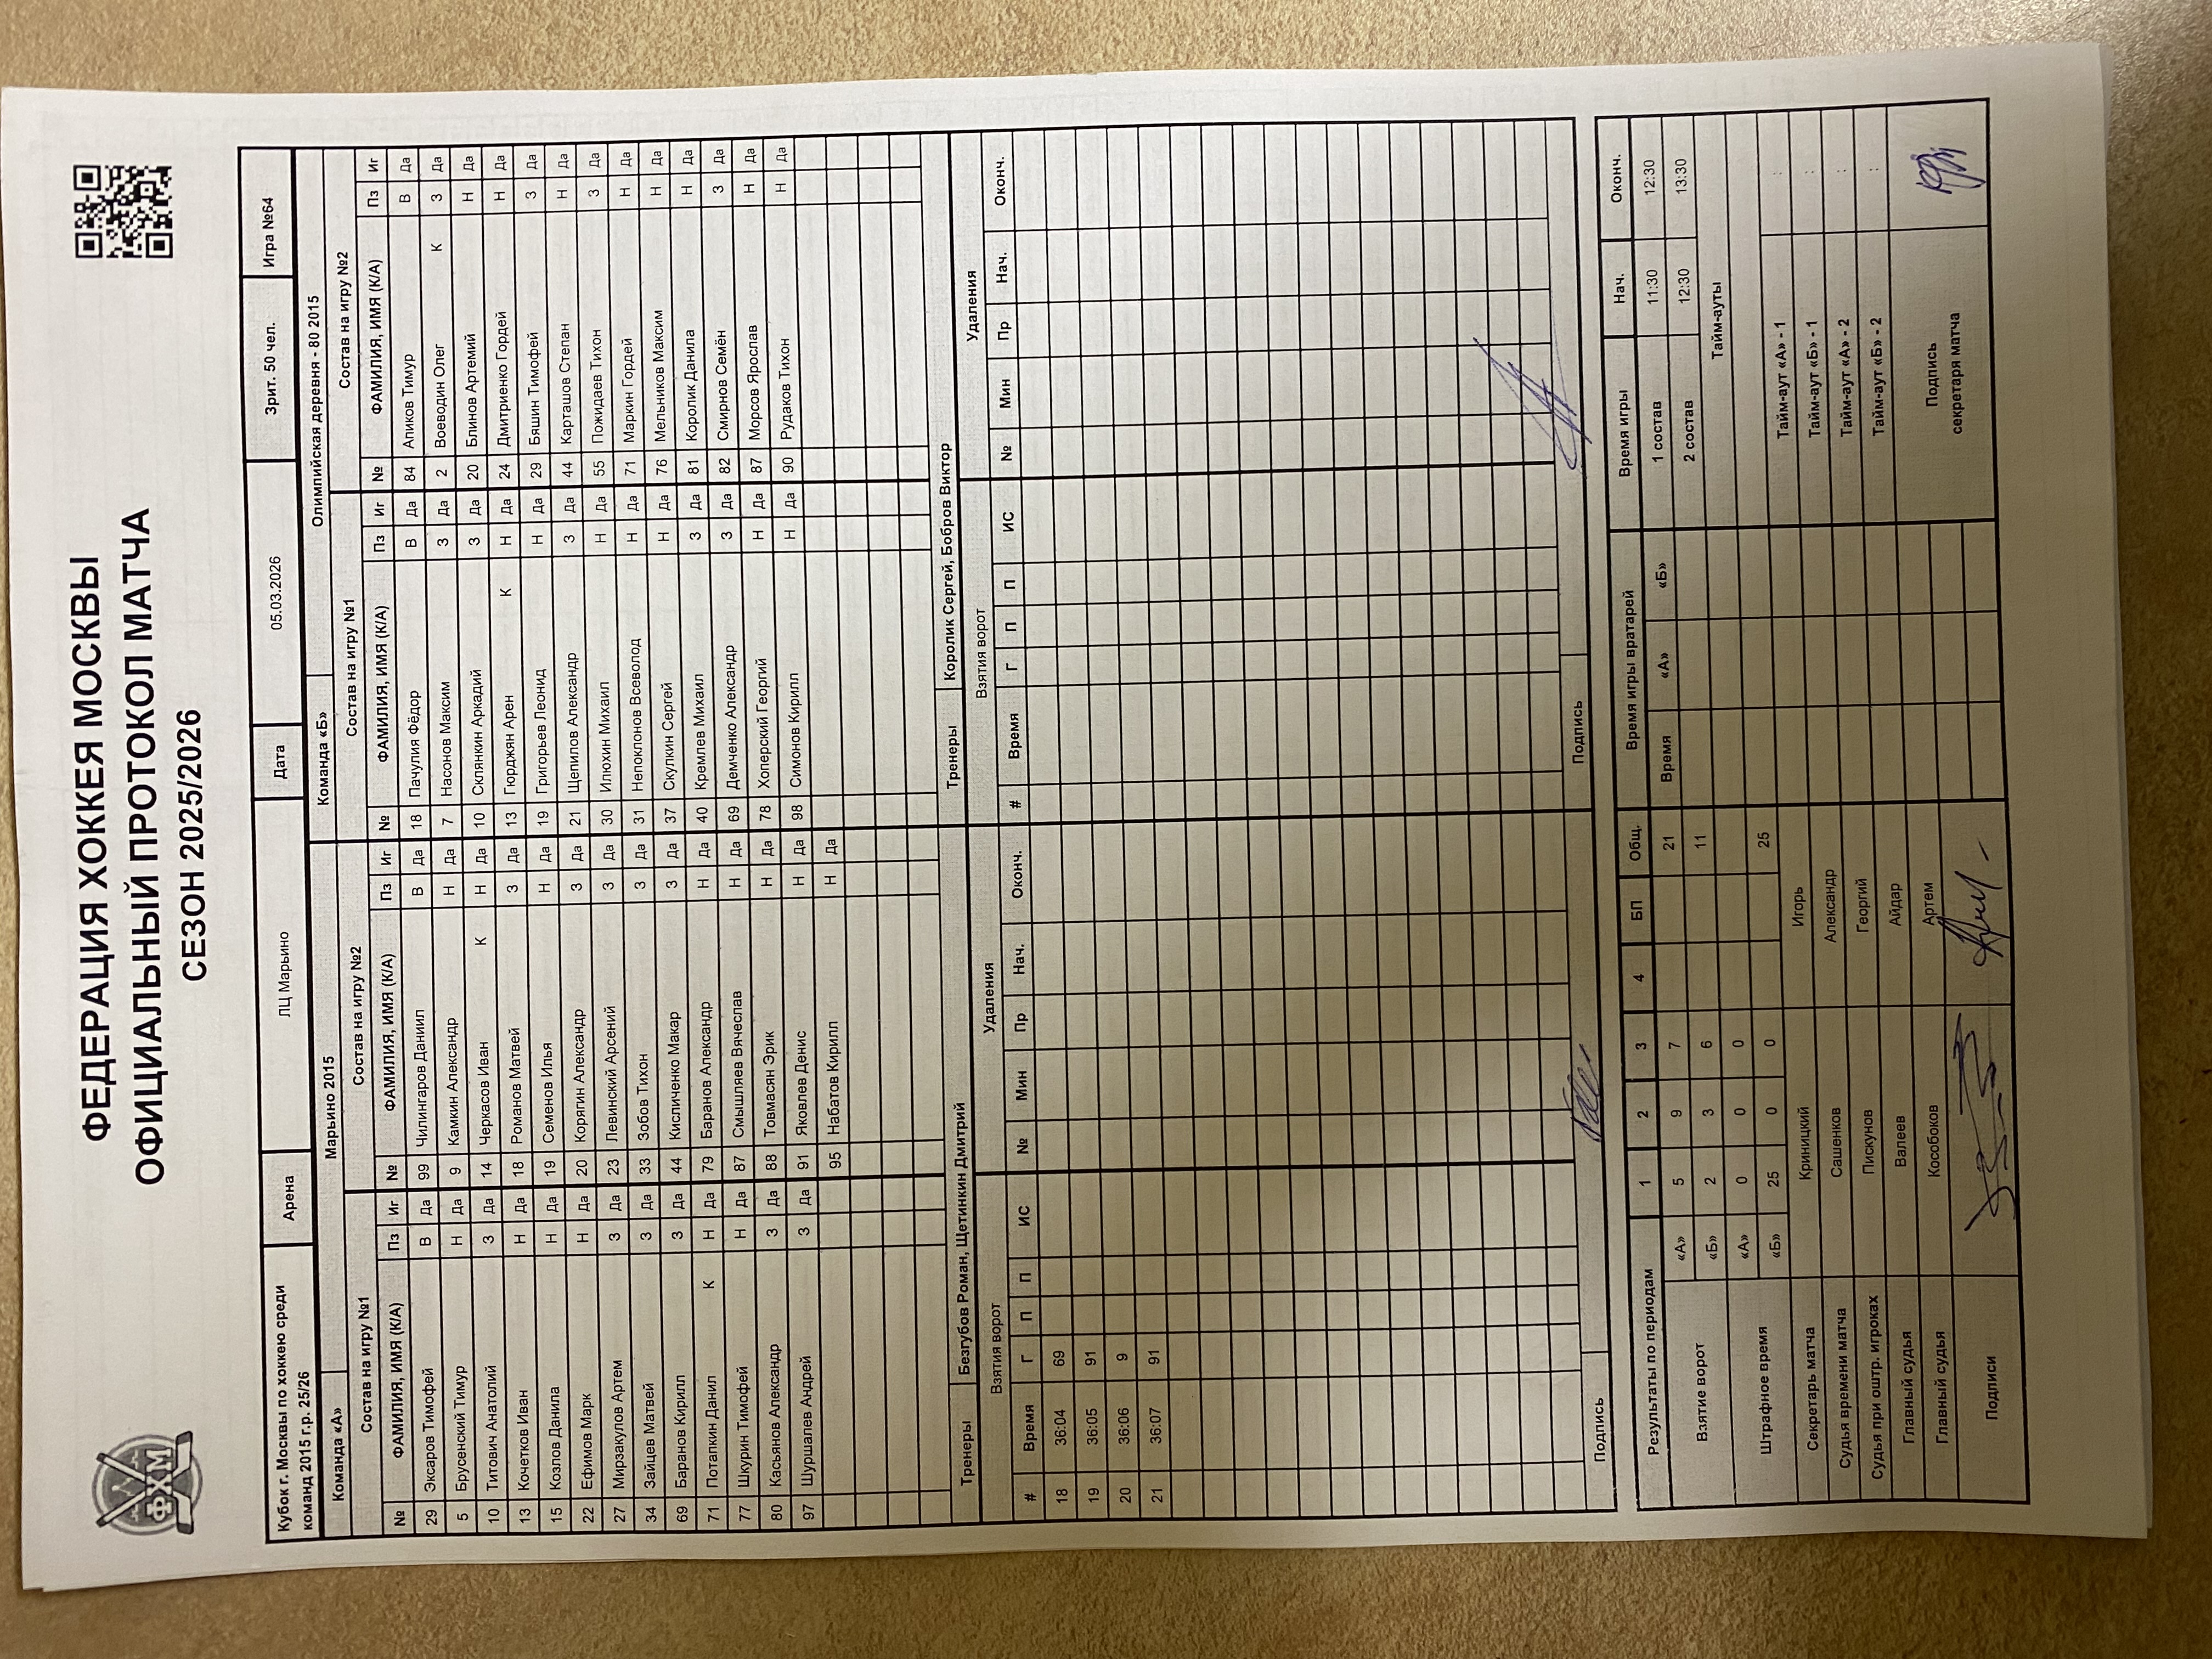 ФХМ
ФЕДЕРАЦИЯ ХОККЕЯ МОСКВЫ
ОФИЦИАЛЬНЫЙ ПРОТОКОЛ МАТЧА
СЕЗОН 2025/2026
Кубок г. Москвы по хоккею среди команд 2015 г.р. 25/26 Арена ЛЦ Марьино Дата 05.03.2026 Зрит. 50 чел. Игра №64
Команда «А» Марьино 2015 Команда «Б» Олимпийская деревня - 80 2015
Состав на игру №1 Состав на игру №2 Состав на игру №1 Состав на игру №2
№ ФАМИЛИЯ, ИМЯ (К/А) Пз Иг № ФАМИЛИЯ, ИМЯ (К/А) Пз Иг № ФАМИЛИЯ, ИМЯ (К/А) Пз Иг № ФАМИЛИЯ, ИМЯ (К/А) Пз Иг
29 Эксаров Тимофей В Да 99 Чилингаров Даниил В Да 18 Пачулия Фёдор В Да 84 Апиков Тимур В Да
5 Брусенский Тимур Н Да 9 Камкин Александр Н Да 7 Насонов Максим З Да 2 Воеводин Олег К З Да
10 Титович Анатолий З Да 14 Черкасов Иван К Н Да 10 Склянкин Аркадий З Да 20 Блинов Артемий Н Да
13 Кочетков Иван Н Да 18 Романов Матвей З Да 13 Гюрджян Арен К Н Да 24 Дмитриенко Гордей Н Да
15 Козлов Данила Н Да 19 Семенов Илья Н Да 19 Григорьев Леонид Н Да 29 Бяшин Тимофей З Да
22 Ефимов Марк Н Да 20 Корягин Александр З Да 21 Щепилов Александр З Да 44 Карташов Степан Н Да
27 Мирзакулов Артем З Да 23 Левинский Арсений З Да 30 Илюхин Михаил Н Да 55 Пожидаев Тихон З Да
34 Зайцев Матвей З Да 33 Зобов Тихон З Да 31 Непоклонов Всеволод Н Да 71 Маркин Гордей Н Да
69 Баранов Кирилл З Да 44 Кисличенко Макар З Да 37 Скулкин Сергей Н Да 76 Мельников Максим Н Да
71 Потапкин Данил К Н Да 79 Баранов Александр Н Да 40 Кремлев Михаил З Да 81 Королик Данила Н Да
77 Шкурин Тимофей Н Да 87 Смышляев Вячеслав Н Да 69 Демченко Александр З Да 82 Смирнов Семён З Да
80 Касьянов Александр З Да 88 Товмасян Эрик Н Да 78 Хоперский Георгий Н Да 87 Морсов Ярослав Н Да
97 Шуршалев Андрей З Да 91 Яковлев Денис Н Да 98 Симонов Кирилл Н Да 90 Рудаков Тихон Н Да
95 Набатов Кирилл Н Да
Тренеры Безгубов Роман, Щетинкин Дмитрий Тренеры Королик Сергей, Бобров Виктор
Взятия ворот Удаления Взятия ворот Удаления
# Время Г П П ИС № Мин Пр Нач. Оконч. # Время Г П П ИС № Мин Пр Нач. Оконч.
18 36:04 69
19 36:05 91
20 36:06 9
21 36:07 91
Подпись Подпись
Результаты по периодам 1 2 3 4 БП Общ. Время игры вратарей Время игры Нач. Оконч.
Взятие ворот «А» 5 9 7 21 Время «А» «Б» 1 состав 11:30 12:30
«Б» 2 3 6 11 2 состав 12:30 13:30
Штрафное время «А» 0 0 0 Тайм-ауты
«Б» 25 0 0 25 Тайм-аут «А» - 1 :
Секретарь матча Криницкий Игорь Тайм-аут «Б» - 1 :
Судья времени матча Сашенков Александр Тайм-аут «А» - 2 :
Судья при оштр. игроках Пискунов Георгий Тайм-аут «Б» - 2 :
Главный судья Валеев Айдар
Главный судья Кособоков Артем
Подписи
Подпись секретаря матча